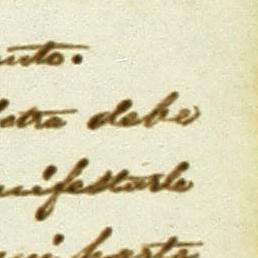 unto.
letra debe
anifestarle
mi parte